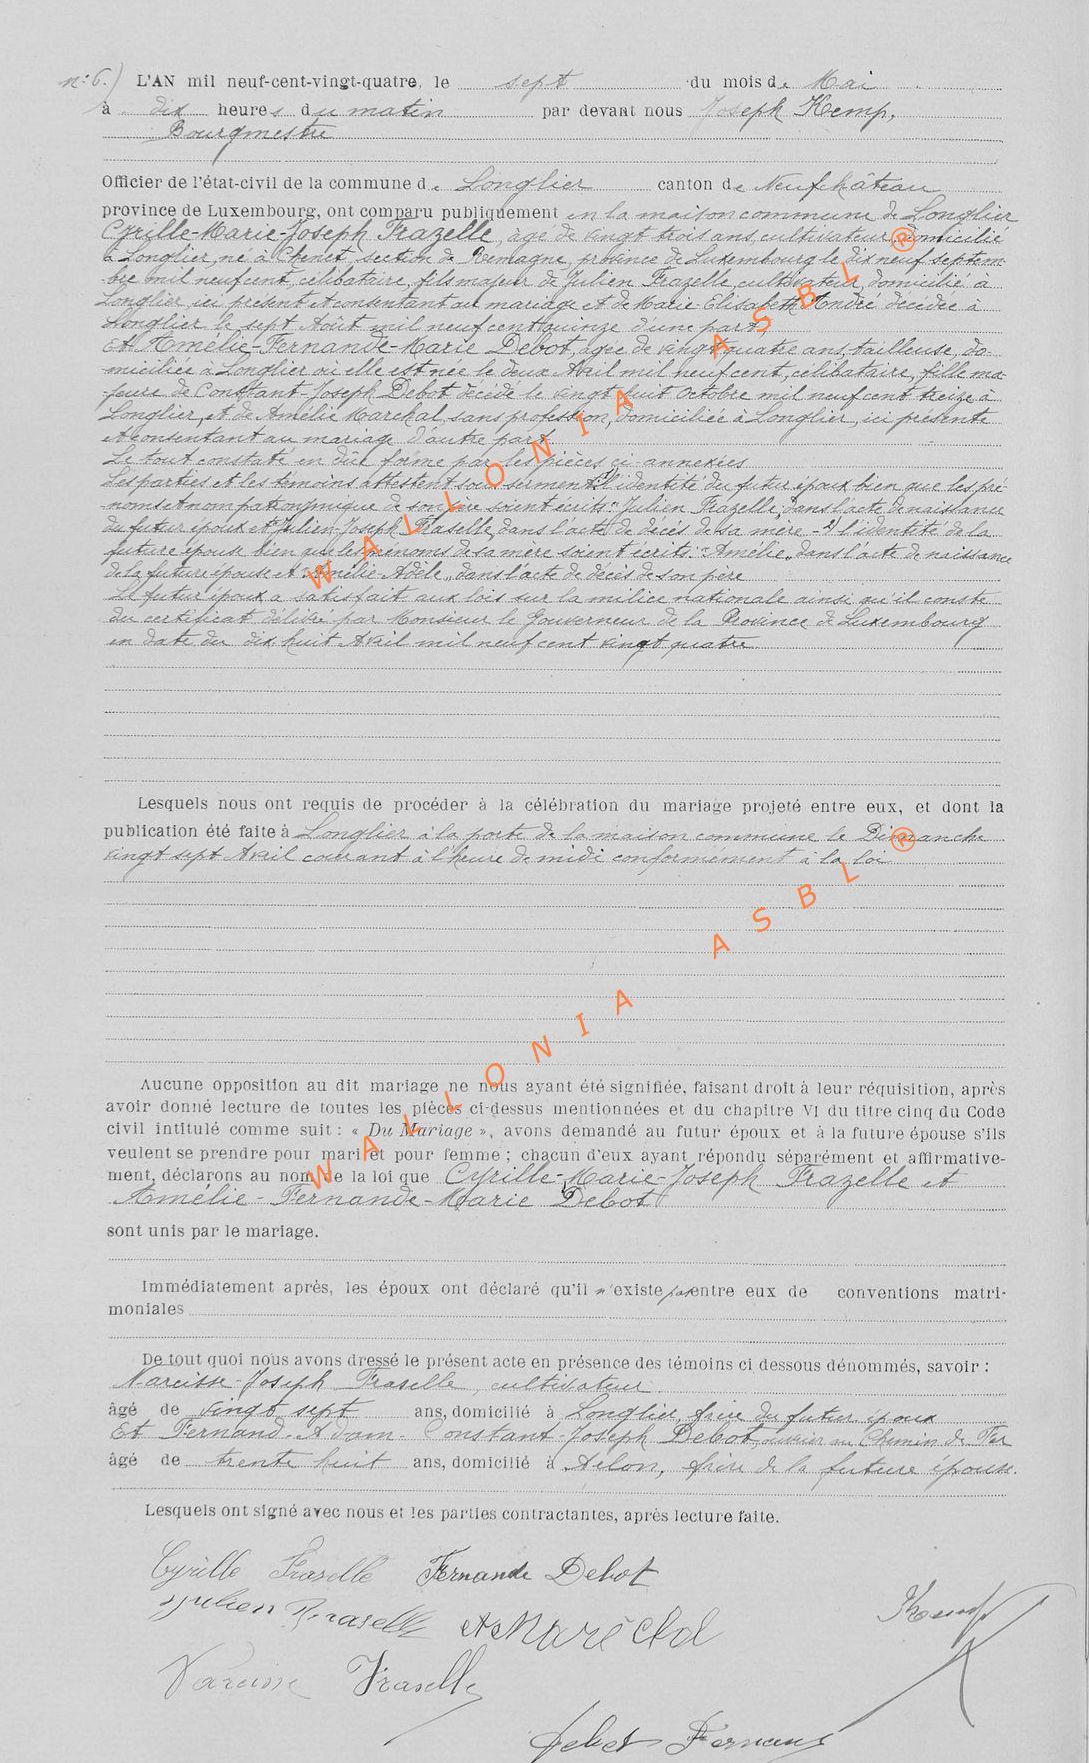 n: 6.) L'AN mil neuf-cent-vingt-quatre, le sept du mois de Mai
à dix heures du matin par devant nous Joseph Kemp,
Bourgmestre
Officier de l'état-civil de la commune de Longlier canton de Neufchâteau
province de Luxembourg, ont comparu publiquement en la maison commune de Longlier
Cyrille-Marie-Joseph Frazelle, âgé de vingt trois ans, cultivateur, domicilié
à Longlier, né à Chenet, section de Remagne, province de Luxembourg le dix neuf septem
bre mil neuf cent, célibataire, fils majeur de Julien Frazelle, cultivateur, domicilié à
Longlier, ici présent et consentant au mariage et de Marie Elisabeth André décédée à
Longlier le sept Août mil neuf cent quinze d'une part,
Et Amélie-Fernande-Marie Debot, âgée de vingt quatre ans, tailleuse, do-
miciliée à Longlier où elle est née le deux Avril mil neuf cent, célibataire, fille ma
jeure de Constant-Joseph Debot décédé le vingt huit Octobre mil neuf cent treize à
Longlier, et de Amélie Marechal, sans profession, domiciliée à Longlier, ici présente
et consentant au mariage d'autre part.
Le tout constaté en due forme par les pièces ci-annexées
Les parties et les témoins attestent sous serment: 1) l'identité du futur époux bien que les pré
noms et nom patronymique de son père soient écrits: Julien Frazelle, dans l'acte de naissance
du futur époux et Julien-Joseph Fraselle, dans l'acte de décès de sa mère - 2) l'identité de la
future épouse bien que les prénoms de sa mère soient écrits: "Amélie" dans l'acte de naissance
de la future épouse et "Amélie-Adèle" dans l'acte de décès de son père
Le futur époux a satisfait aux lois sur la milice nationale ainsi qu'il conste
du certificat délivré par Monsieur le Gouverneur de la Province de Luxembourg
en date du dix huit Avril mil neuf cent vingt quatre.
Lesquels nous ont requis de procéder à la célébration du mariage projeté entre eux, et dont la
publication été faite à Longlier à la porte de la maison commune le Dimanche
vingt sept Avril courant à l'heure de midi conformément à la loi
Aucune opposition au dit mariage ne nous ayant été signifiée, faisant droit à leur réquisition, après
avoir donné lecture de toutes les pièces ci-dessus mentionnées et du chapitre VI du titre cinq du Code
civil intitulé comme suit : « Du Mariage », avons demandé au futur époux et à la future épouse s'ils
veulent se prendre pour mari et pour femme ; chacun d'eux ayant répondu séparément et affirmative-
ment, déclarons au nom de la loi que Cyrille-Marie-Joseph Frazelle et
Amélie-Fernande-Marie Debot
sont unis par le mariage.
Immédiatement après, les époux ont déclaré qu'il n'existe pas entre eux de conventions matri-
moniales
De tout quoi nous avons dressé le présent acte en présence des témoins ci dessous dénommés, savoir :
Narcisse-Joseph Fraselle, cultivateur
âgé de vingt sept ans, domicilié à Longlier, frère du futur époux
Et Fernand-Adam-Constant-Joseph Debot, ouvrier au Chemin de Fer
âgé de trente huit ans, domicilié à Arlon, frère de la future épouse.
Lesquels ont signé avec nous et les parties contractantes, après lecture faite.
Cyrille Fraselle Fernande Debot
Julien Fraselle A Maréchal Kemp
Narcisse Fraselle
Debot Fernand
WALLONIA ASBL ®
WALLONIA ASBL ®